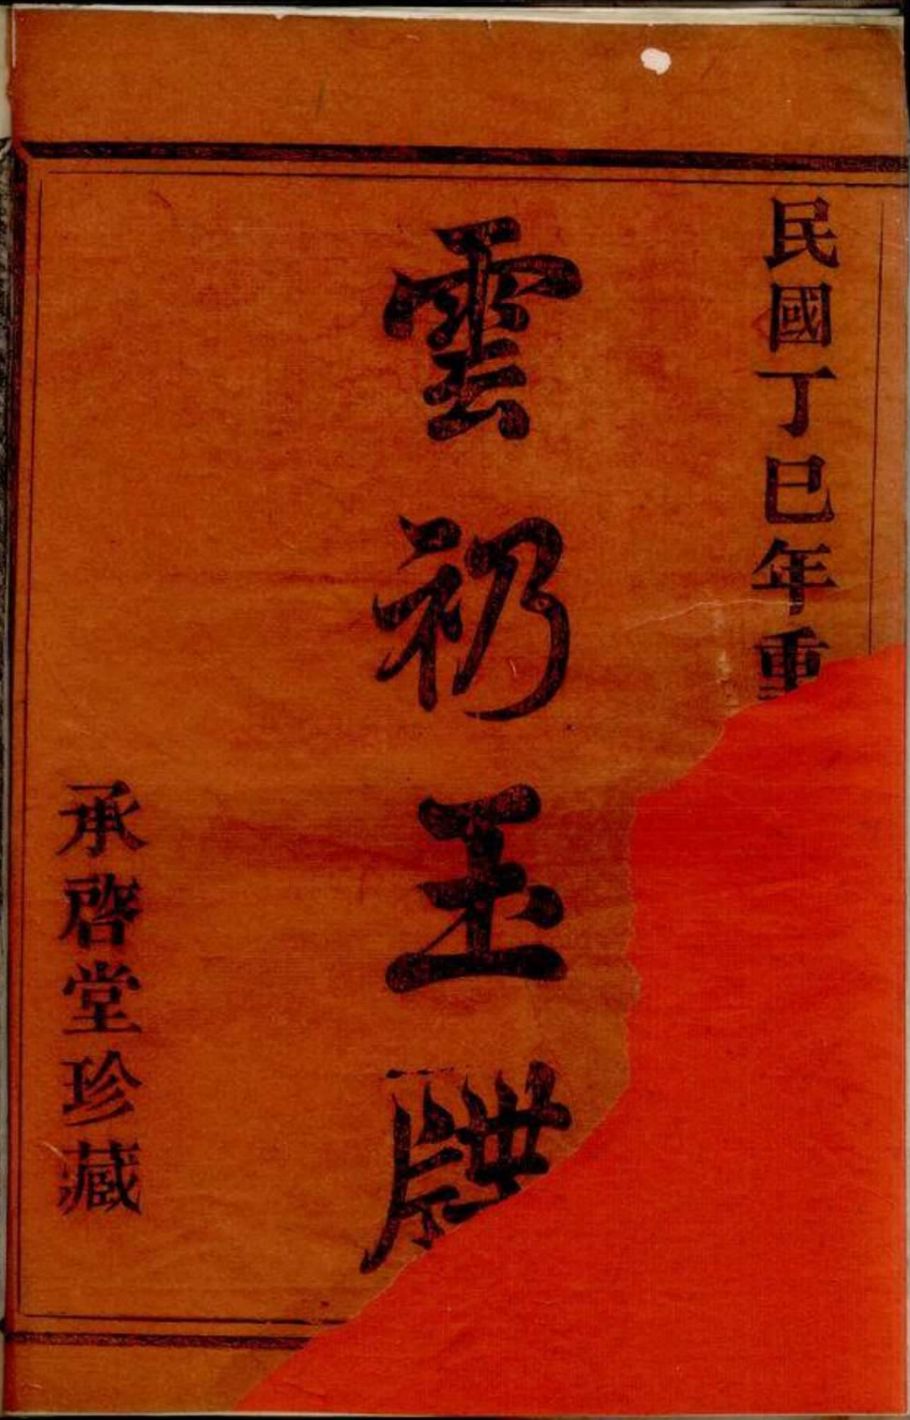 民國丁巳年重
雲礽玉牒
承啓堂珍藏